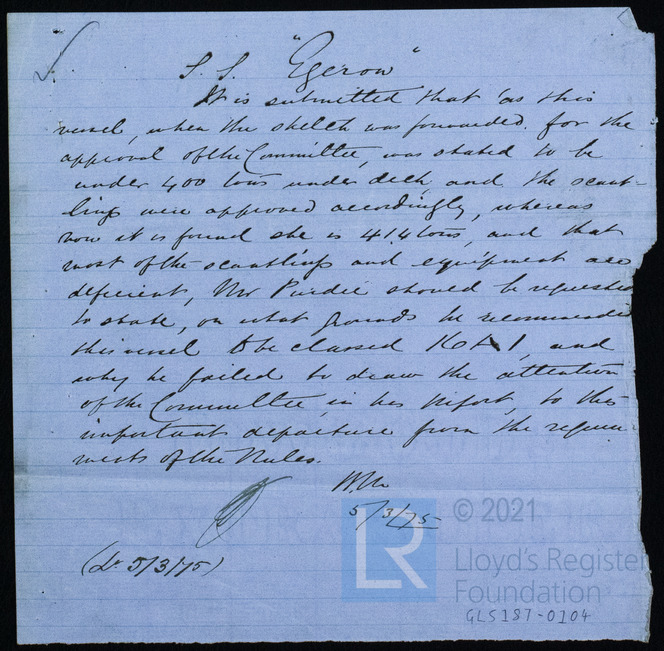 S. S. "Egeron"
It is submitted that as this
vessel, when the sketch was forwarded for the
approval of the Committee, was stated to be
under 400 tons under deck, and the scant-
lings were approved accordingly, whereas
now it is found she is 414 tons, and that
most of the scantlings and equipment are
deficient, Mr Purdie should be requested
to state, on what grounds he recommended
this vessel to be classed 16A1, and
why he failed to draw the attention
of the Committee, in his report, to this
important departure from the require-
ments of the Rules.
5/3/75
(Lr 5/3/75)
© 2021
LR
Lloyd's Register
Foundation
GLS187-0104